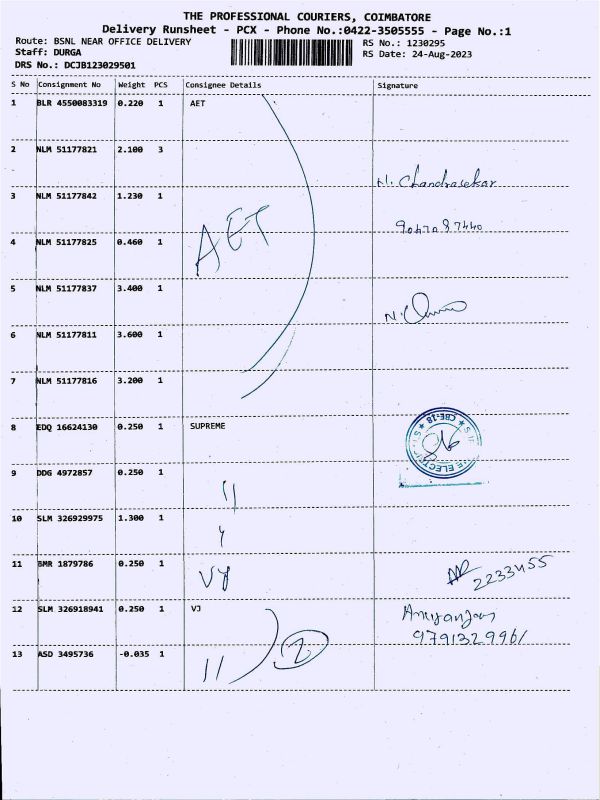 THE PROFESSIONAL COURIERS, COIMBATORE
Delivery Runsheet - PCX - Phone No.:0422-3505555 - Page No.:1
Route: BSNL NEAR OFFICE DELIVERY RS No.: 1230295
Staff: DURGA RS Date: 24-Aug-2023
DRS No.: DCJB123029501
S No Consignment No Weight PCS Consignee Details Signature
1 BLR 4550083319 0.220 1 AET
2 NLM 51177821 2.100 3
N. Chandrasekar
3 NLM 51177842 1.230 1
AET
4 NLM 51177825 0.460 1
5 NLM 51177837 3.400 1
6 NLM 51177811 3.600 1
7 NLM 51177816 3.200 1
8 EDQ 16624130 0.250 1 SUPREME
CBE-18
9 DDG 4972857 0.250 1
11
10 SLM 326929975 1.300 1
11 BMR 1879786 0.250 1
2233455
12 SLM 326918941 0.250 1 VJ
9791329961
13 ASD 3495736 -0.035 1
11 2